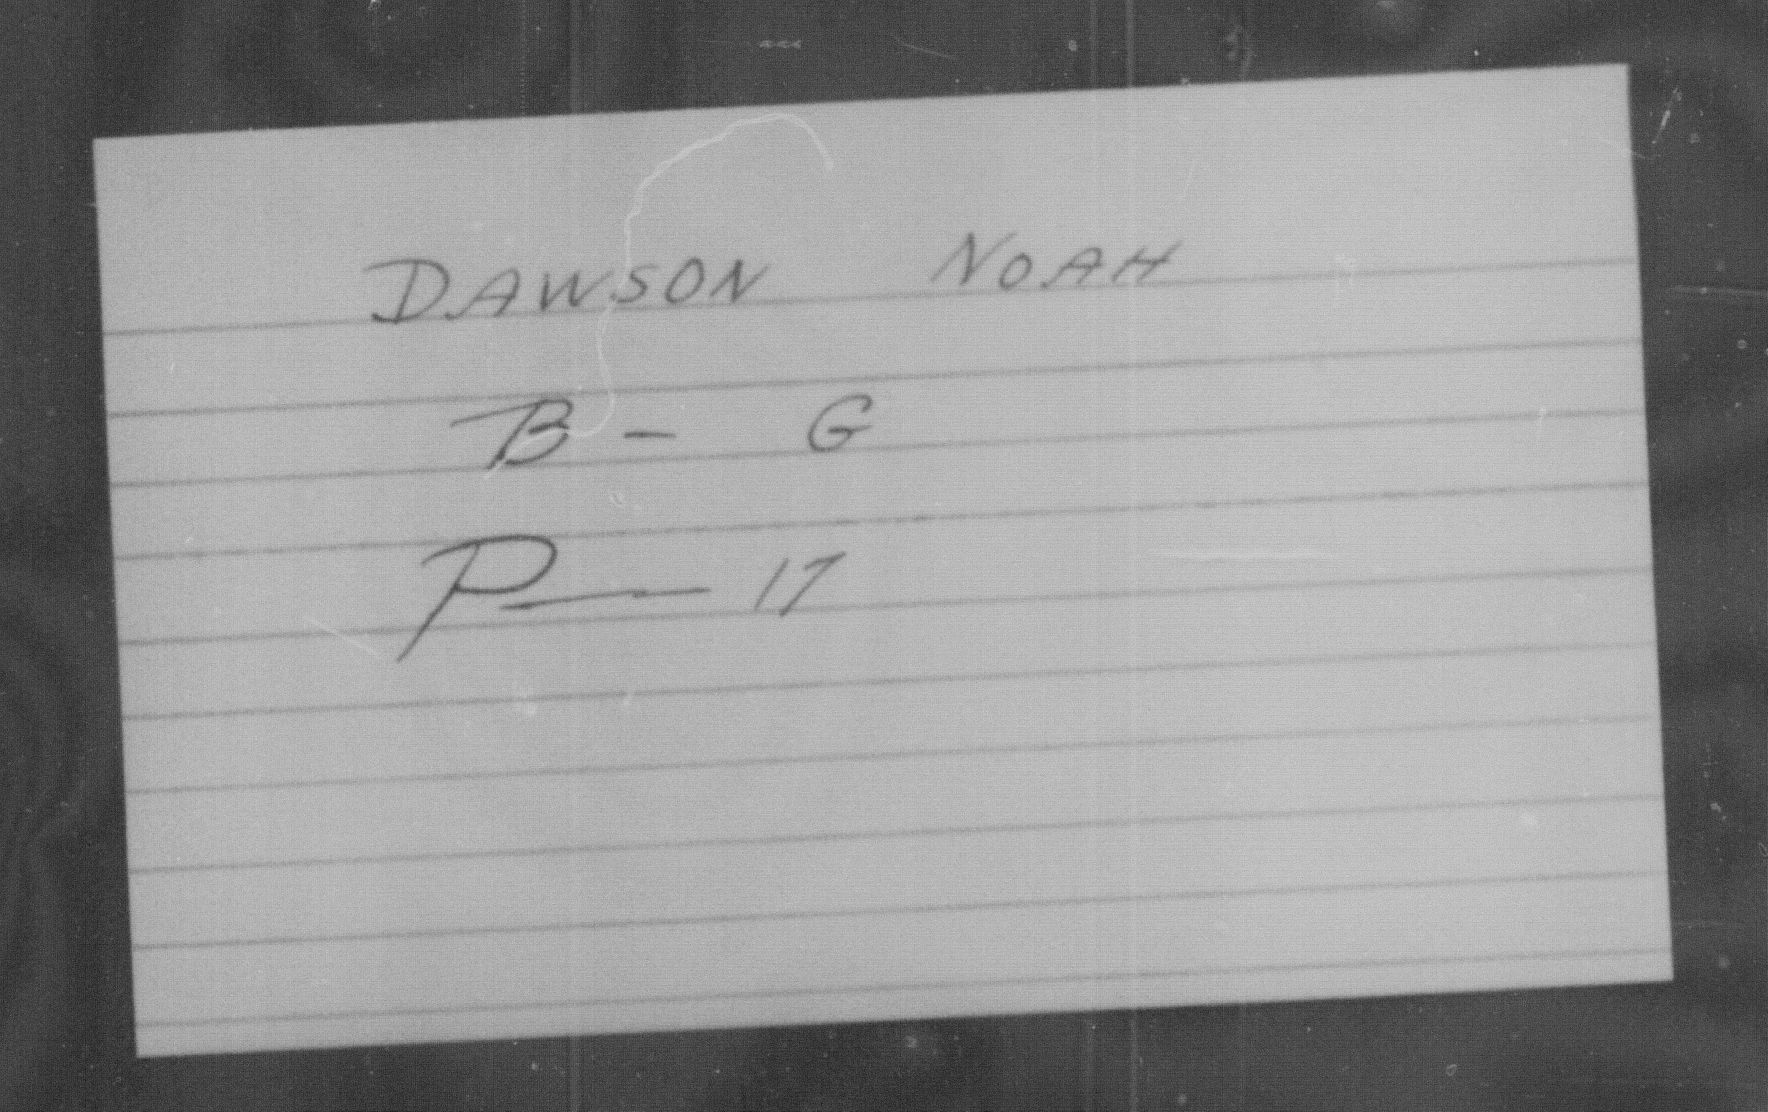 DAWSON NOAH
B - G
P - 17